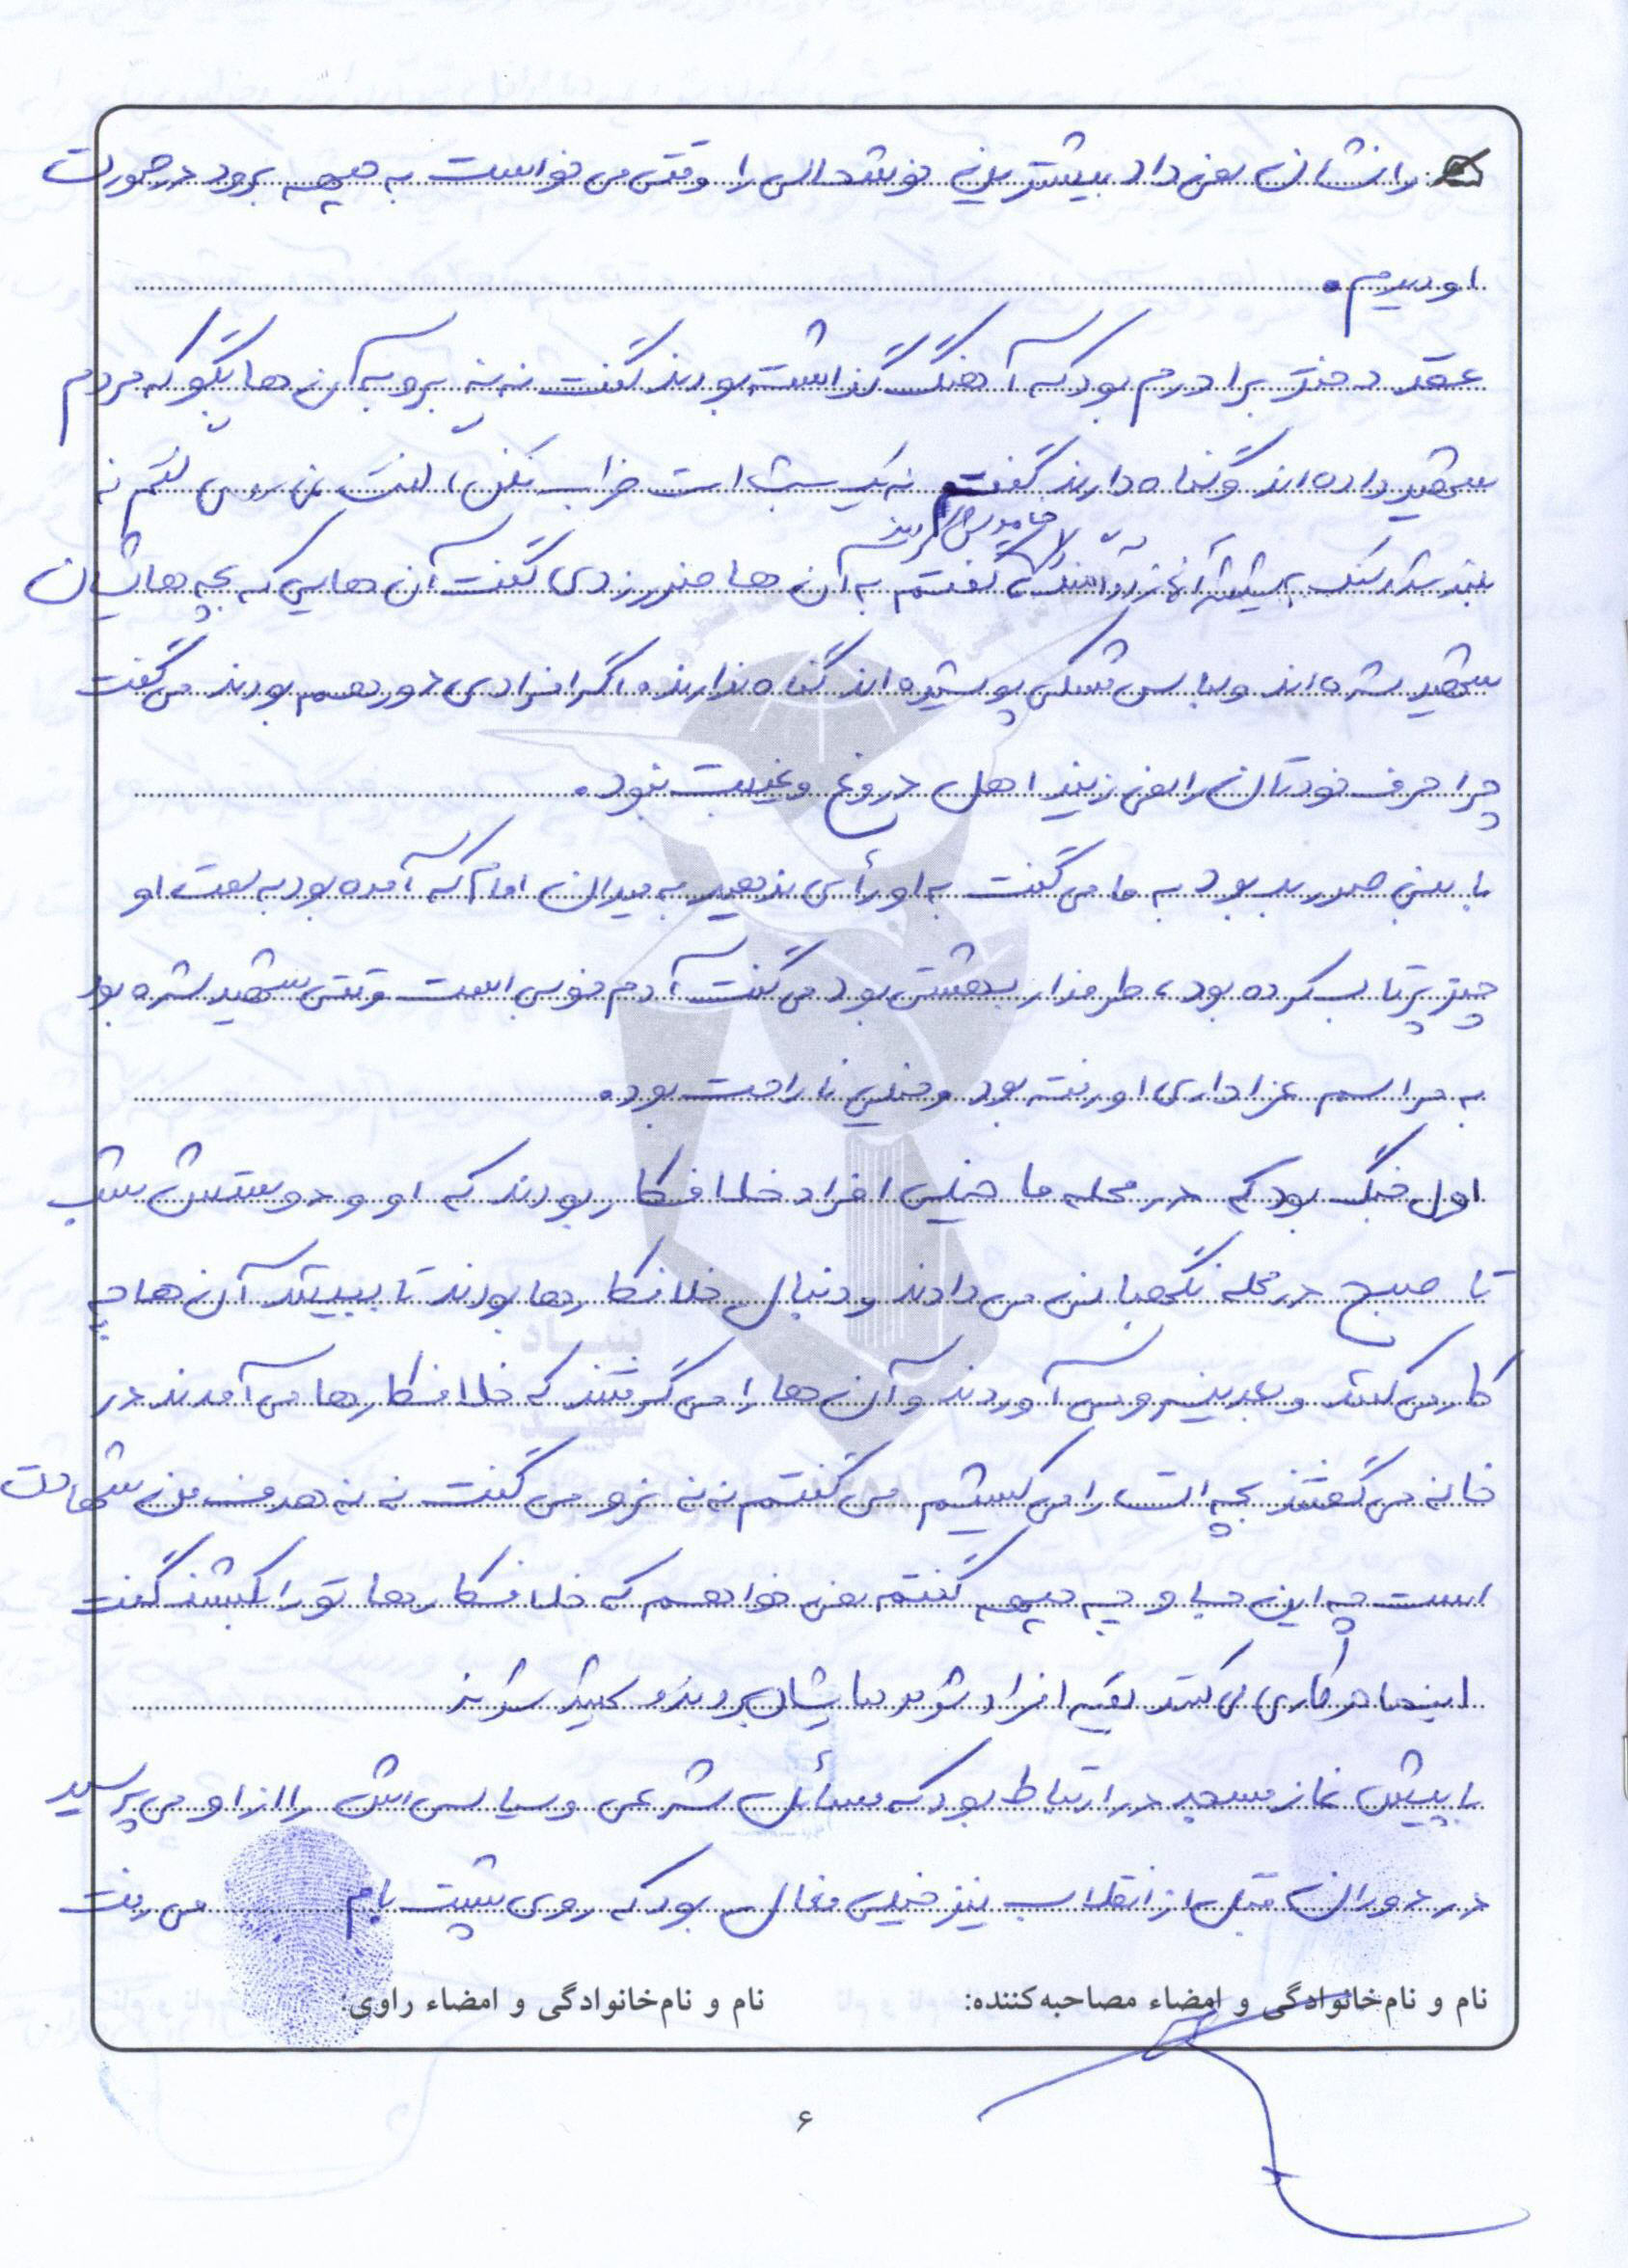 را نشان نمی داد بیشترین خوشحالی را وقتی می خواست به جبهه برود در صورت
او دیدم.
عقد دختر برادرم بود که آهنگ گذاشته بودند گفت ننه برو به آن ها بگو که مردم
شهید داده اند و گناه دارند گفتم نه یک شب است خراب نکن، گفت من روی
گفتم به آن ها خندیدی گفت آن هایی که بچه هایشان
شهید شده اند و لباس مشکی پوشیده اند گناه ندارند. اگر افرادی دور هم بودند می گفت
چرا حرف خودتان را نمی زنید اهل دروغ و غیبت نبود.
با بنی صدر بد بود به ما می گفت به او رأی ندهید به میدان امام که آمده بود به سمت او
چیز پرتاب کرده بود، طرفدار بهشتی بود می گفت آدم خوبی است وقتی شهید شده بود
به مراسم عزاداری او رفته بود و خیلی ناراحت بود.
اول جنگ بود که در محله ما خیلی افراد خلافکار بودند که او و دوستش شب
تا صبح در محله نگهبانی می دادند و دنبال خلافکارها بودند تا ببینند آن ها چه
کار می کنند و بعد نیرو می آوردند و آن ها را می گرفتند که خلافکارها می آمدند در
خانه می گفتند بچه ات را می کشیم می گفتم ننه نرو می گفت ننه هدف من شهادت
است چه این جا و چه جبهه گفتم نمی خواهم که خلافکارها تو را بکشند گفت
اینها هر کاری می کنند بقیه افراد
با پیش نماز مسجد در ارتباط بود که مسائل شرعی و سیاسی اش را از او می پرسید
در دوران قبل از انقلاب نیز خیلی فعال بود که روی پشت بام می رفت
نام و نام‌خانوادگی و امضاء مصاحبه‌کننده: نام و نام‌خانوادگی و امضاء راوی:
۶